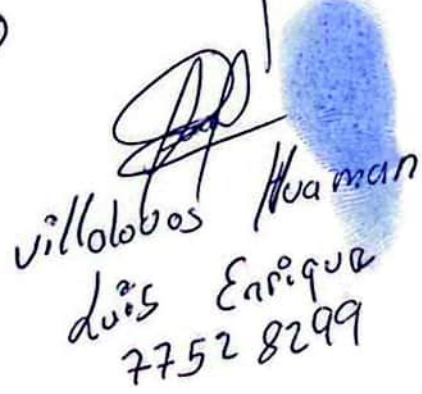 villalobos Huaman
Luis Enrique
7752 8299